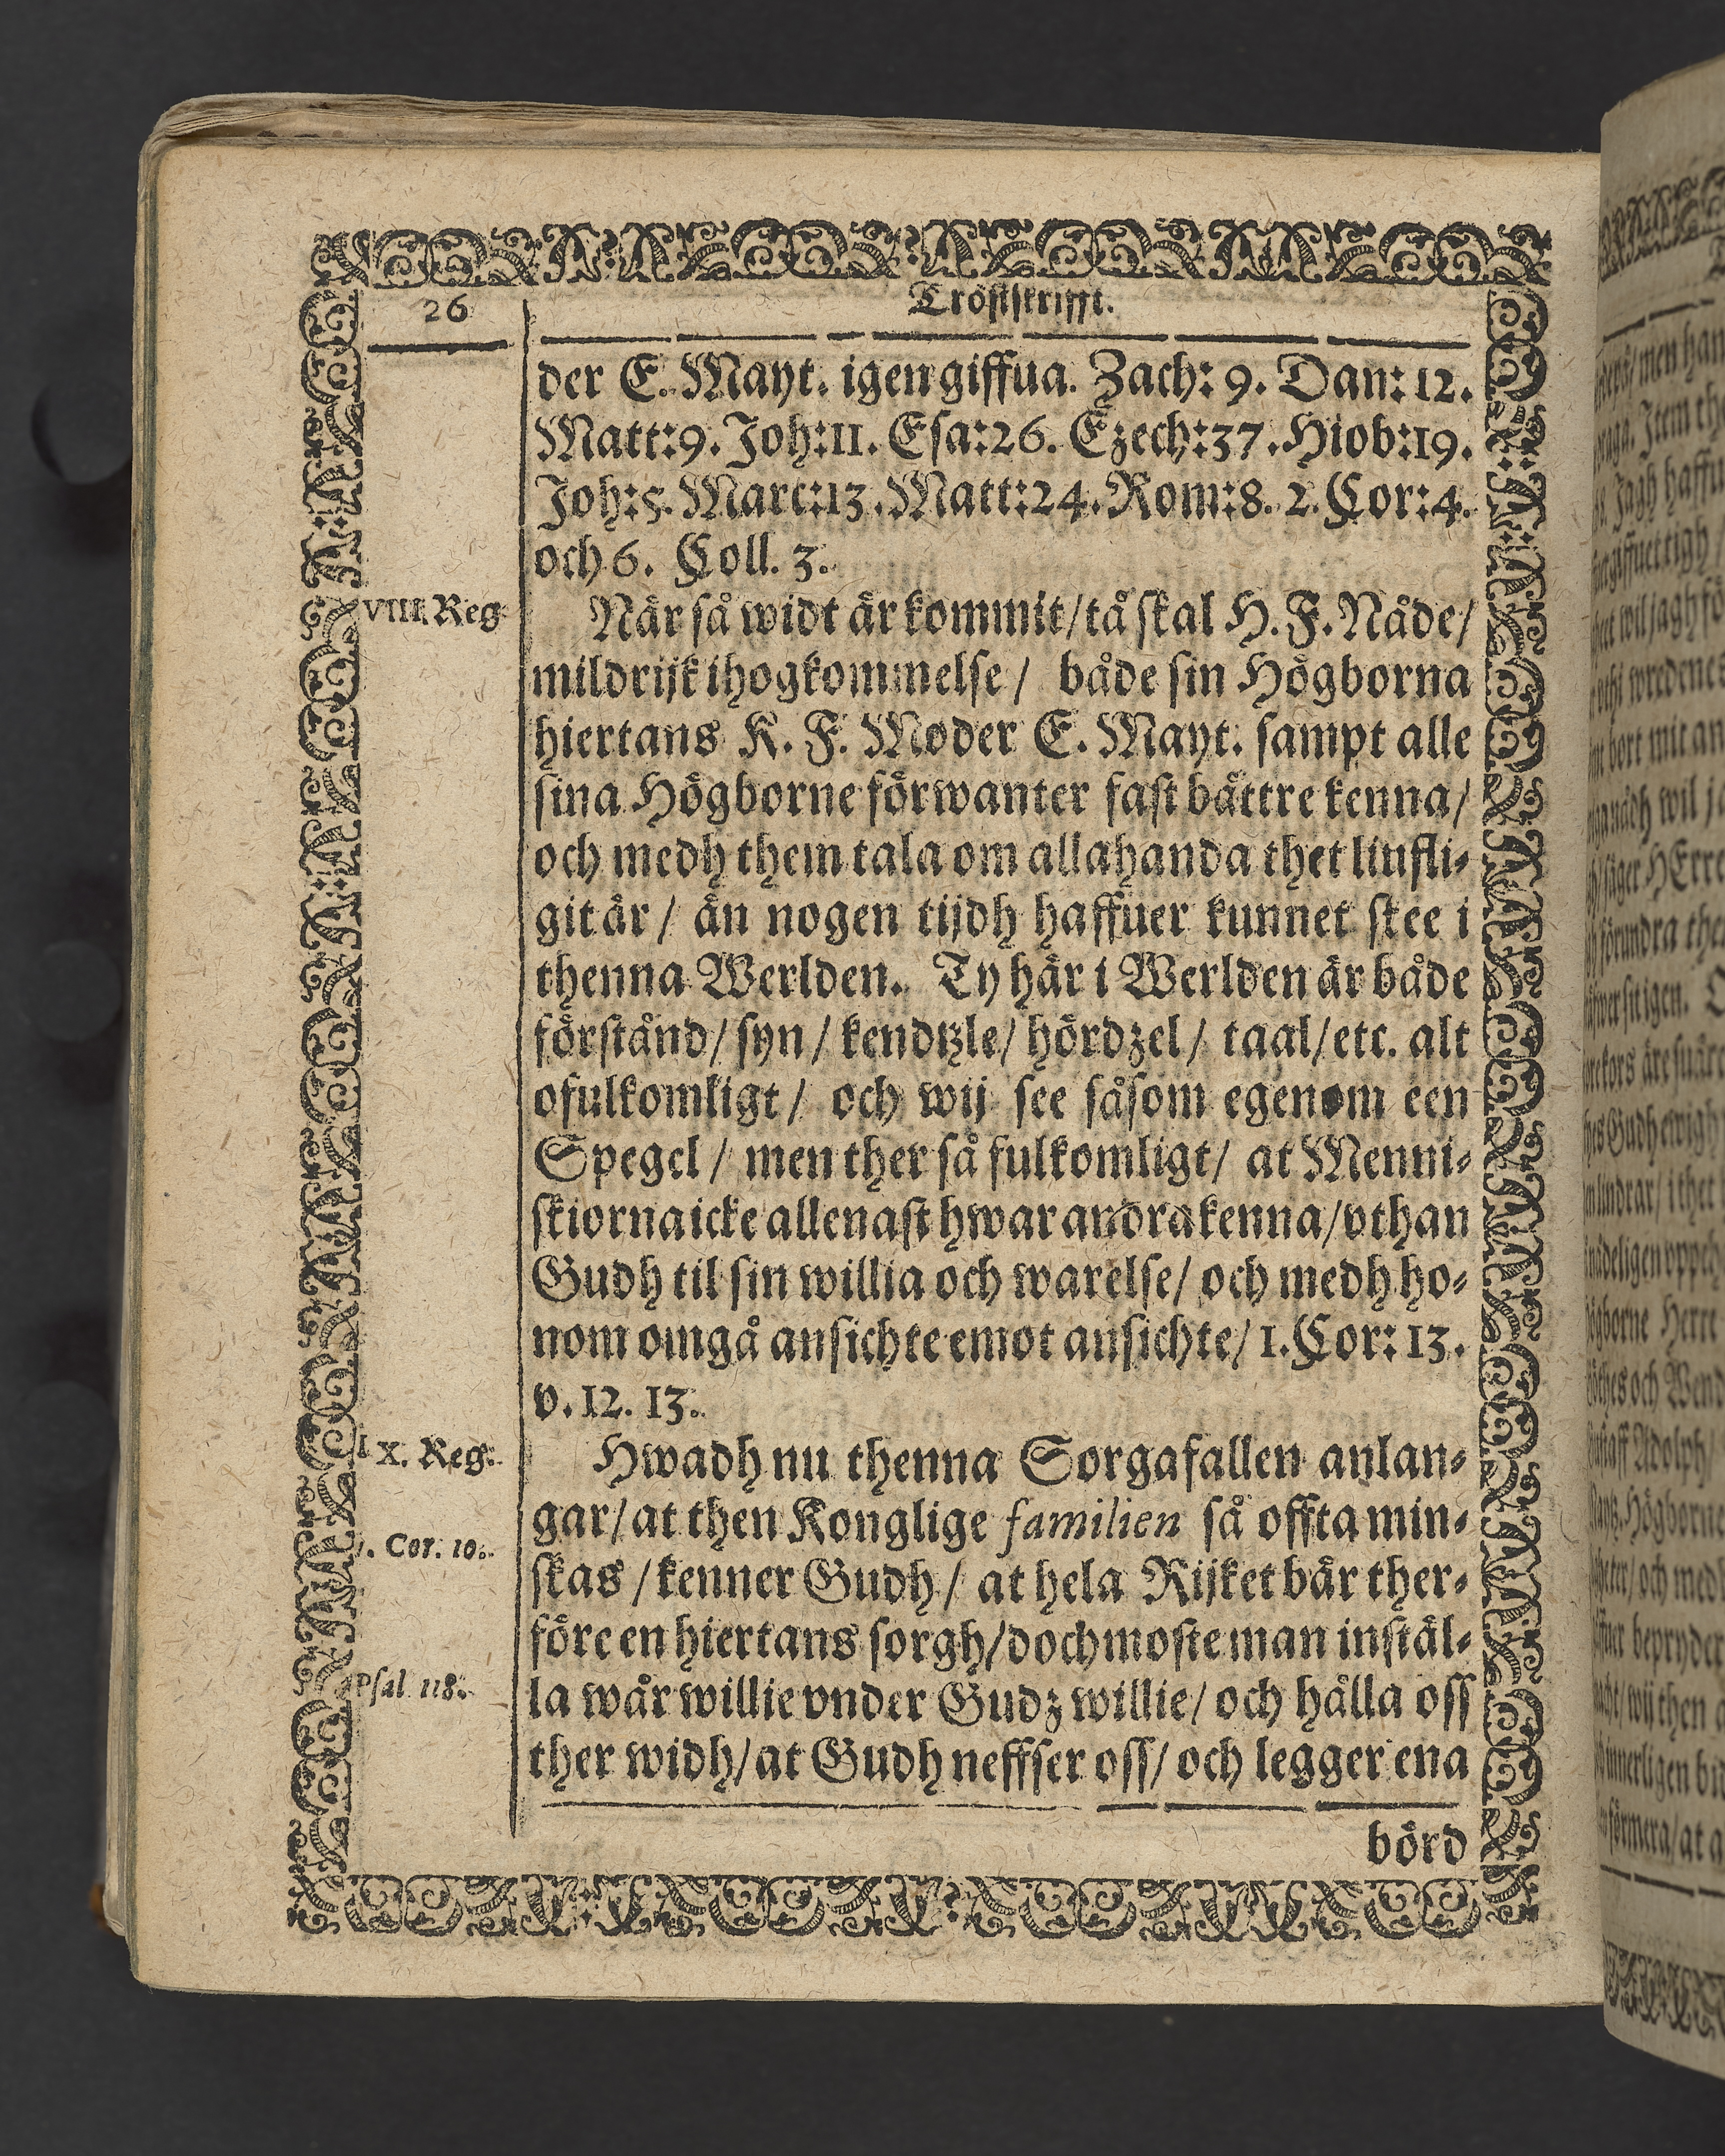 26
Tröstskrifft.
der E. Mayt. igen giffua. Zach: 9. Dan: 12.
Matt: 9. Joh: 11. Esa: 26. Ezech: 37. Hiob: 19.
Joh: 5. Marc: 13. Matt: 24. Rom: 8. 2. Cor: 4.
och 6. Coll. 3.
VIII. Reg.
När så widt är kommit/ tå skal H. F. Nåde/
mildrijk ihogkommelse/ både sin Högborna
hiertans K. F. Moder E. Mayt. sampt alle
sina Högborne förwanter fast bättre kenna/
och medh them tala om allahanda thet liufli⸗
git är/ än nogen tijdh haffuer kunnet skee i
thenna Werlden. Ty här i Werlden är både
förstånd/ syn/ kendtzle/ hördzel/ taal/ etc. alt
ofulkomligt/ och wij see såsom egenom een
Spegel/ men ther så fulkomligt/ at Menni⸗
skiorna icke allenast hwar andra kenna/ vthan
Gudh til sin willia och warelse/ och medh ho⸗
nom omgå ansichte emot ansichte/ 1. Cor: 13.
v. 12. 13.
IX. Reg.
Hwadh nu thenna Sorgafallen anlan⸗
gar/ at then Konglige familien så offta min⸗
1. Cor. 10.
skas/ kenner Gudh/ at hela Rijket bär ther⸗
före en hiertans sorgh/ doch moste man instäl⸗
Psal. 118.
la wår willie vnder Gudz willie/ och hålla oss
ther widh/ at Gudh neffser oss/ och legger ena
börd